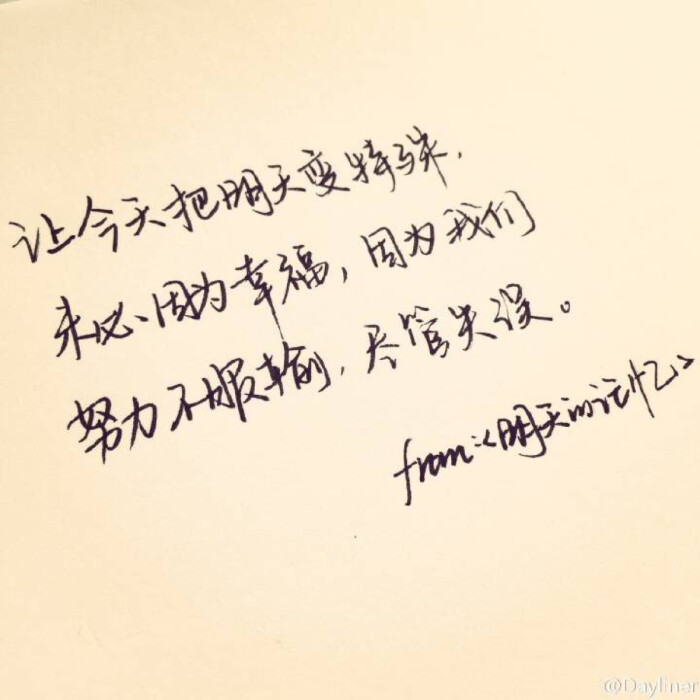 让今天把明天变特殊，
未必因为幸福，因为我们
努力不服输，尽管失误。
from：<明天的记忆>
@Daylinar